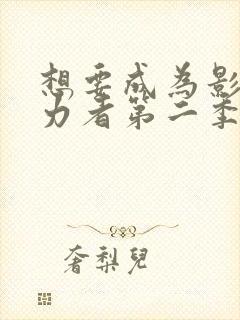 想要成為影
力者第二季
奢梨兒